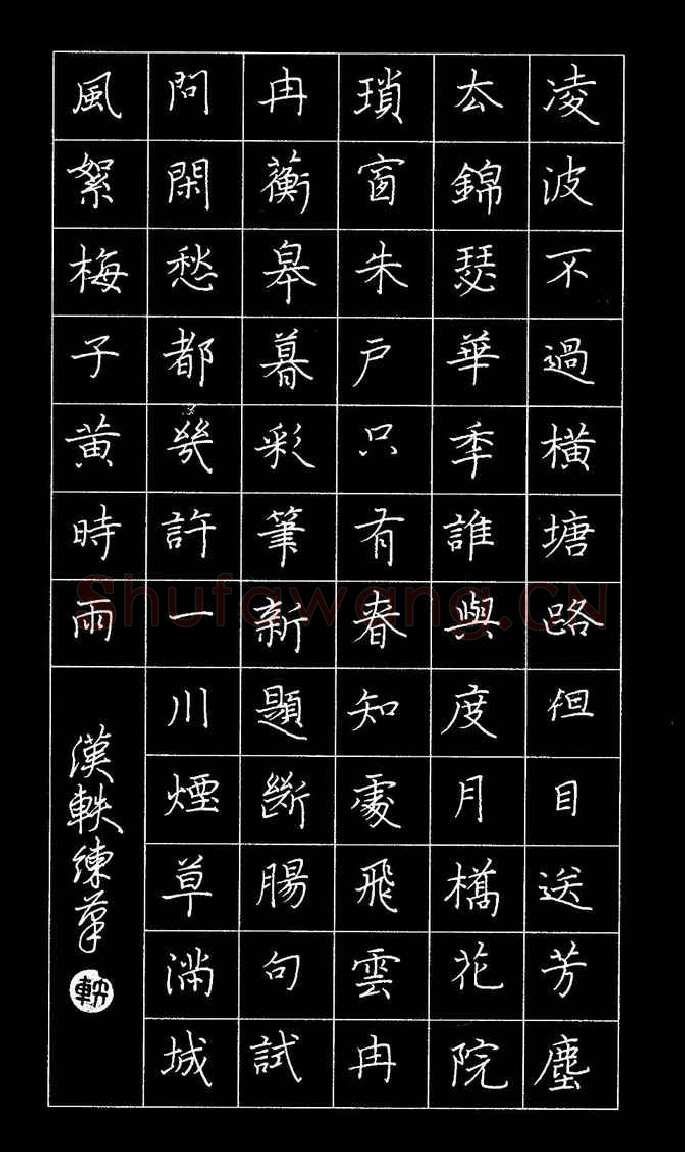 凌波不過橫塘路但目送芳塵
厺錦瑟華秊誰與度月橋花院
瑣窗朱戶只有春知處飛雲冉
冉蘅皋暮彩筆新題斷腸句試
問閑愁都幾許一川煙草滿城
風絮梅子黃時雨
漢軼練筆
軼
Shufawang.CN